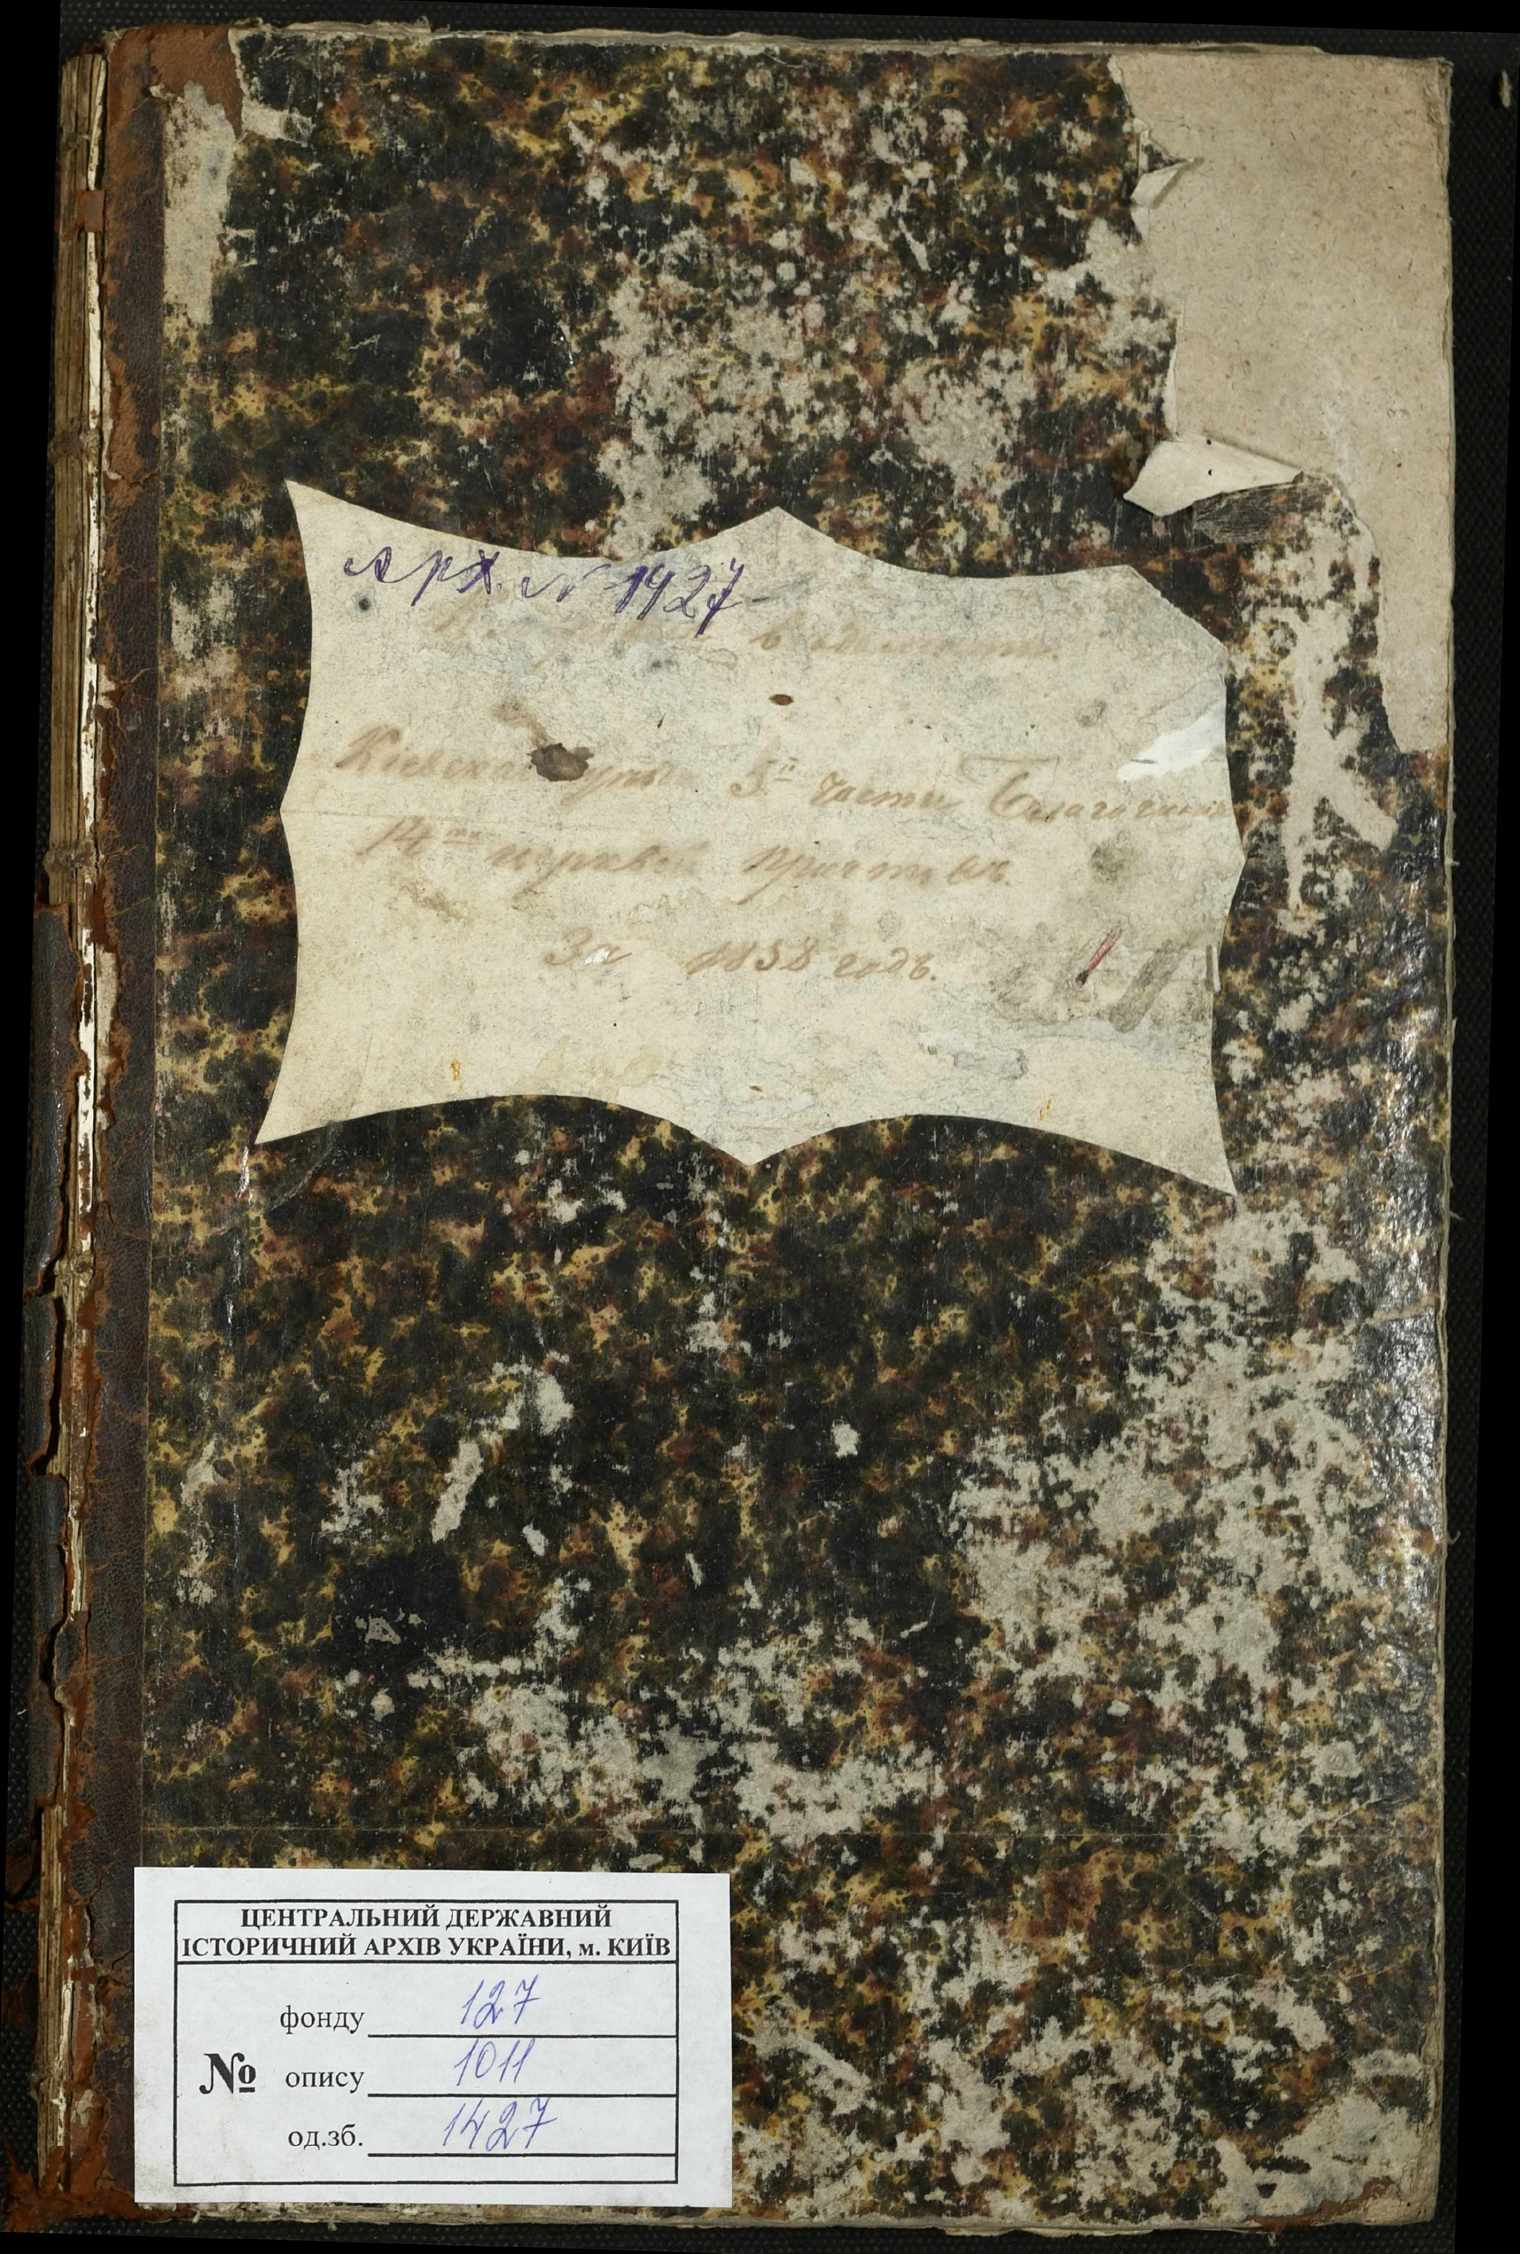 Арх. № 1427
вѣдомость.
Кіевска 5й части Благочинія
14ти церквей причтовъ.
За 1838 годъ.
ЦЕНТРАЛЬНИЙ ДЕРЖАВНИЙ
ІСТОРИЧНИЙ АРХІВ УКРАЇНИ, м. КИЇВ
фонду 127
№ опису 1011
од.зб. 1427